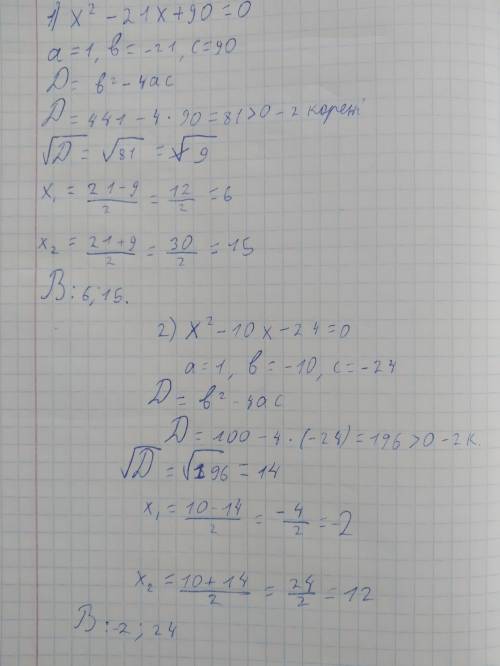 1) x² - 21x + 90 = 0
a = 1, в = -21, c = 90
D = в² - 4ac
D = 441 - 4 · 90 = 81 > 0 - 2 корені
√D = √81 = √9
x₁ = (21-9)/2 = 12/2 = 6
x₂ = (21+9)/2 = 30/2 = 15
В: 6; 15.
2) x² - 10x - 24 = 0
a = 1, в = -10, c = -24
D = в² - 4ac
D = 100 - 4 · (-24) = 196 > 0 - 2 к.
√D = √196 = 14
x₁ = (10-14)/2 = -4/2 = -2
x₂ = (10+14)/2 = 24/2 = 12
В: -2; 24